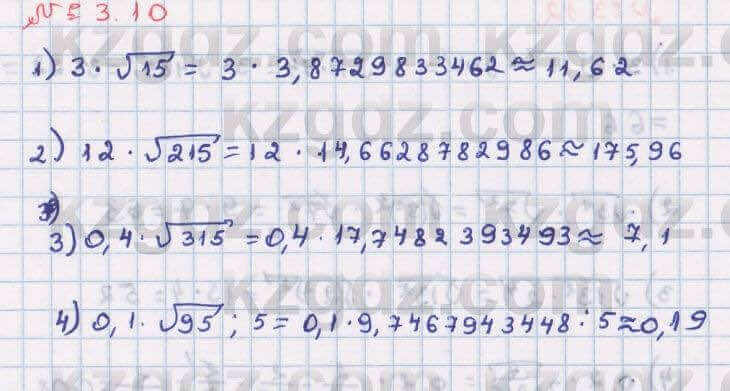 № 53.10
1) 3 · √15 = 3 · 3,8729833462 ≈ 11,62
2) 12 · √215 = 12 · 14,6628782986 ≈ 175,96
3) 0,4 · √315 = 0,4 · 17,7482393493 ≈ 7,1
4) 0,1 · √95 ; 5 = 0,1 · 9,7467943448 : 5 ≈ 0,19
kzgdz.com
kzgdz.com
kzgdz.com
kzgdz.com